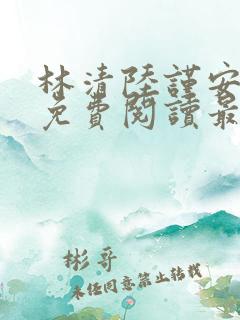 林清陸謹安
免費閱讀最
彬哥
未经同意禁止转载